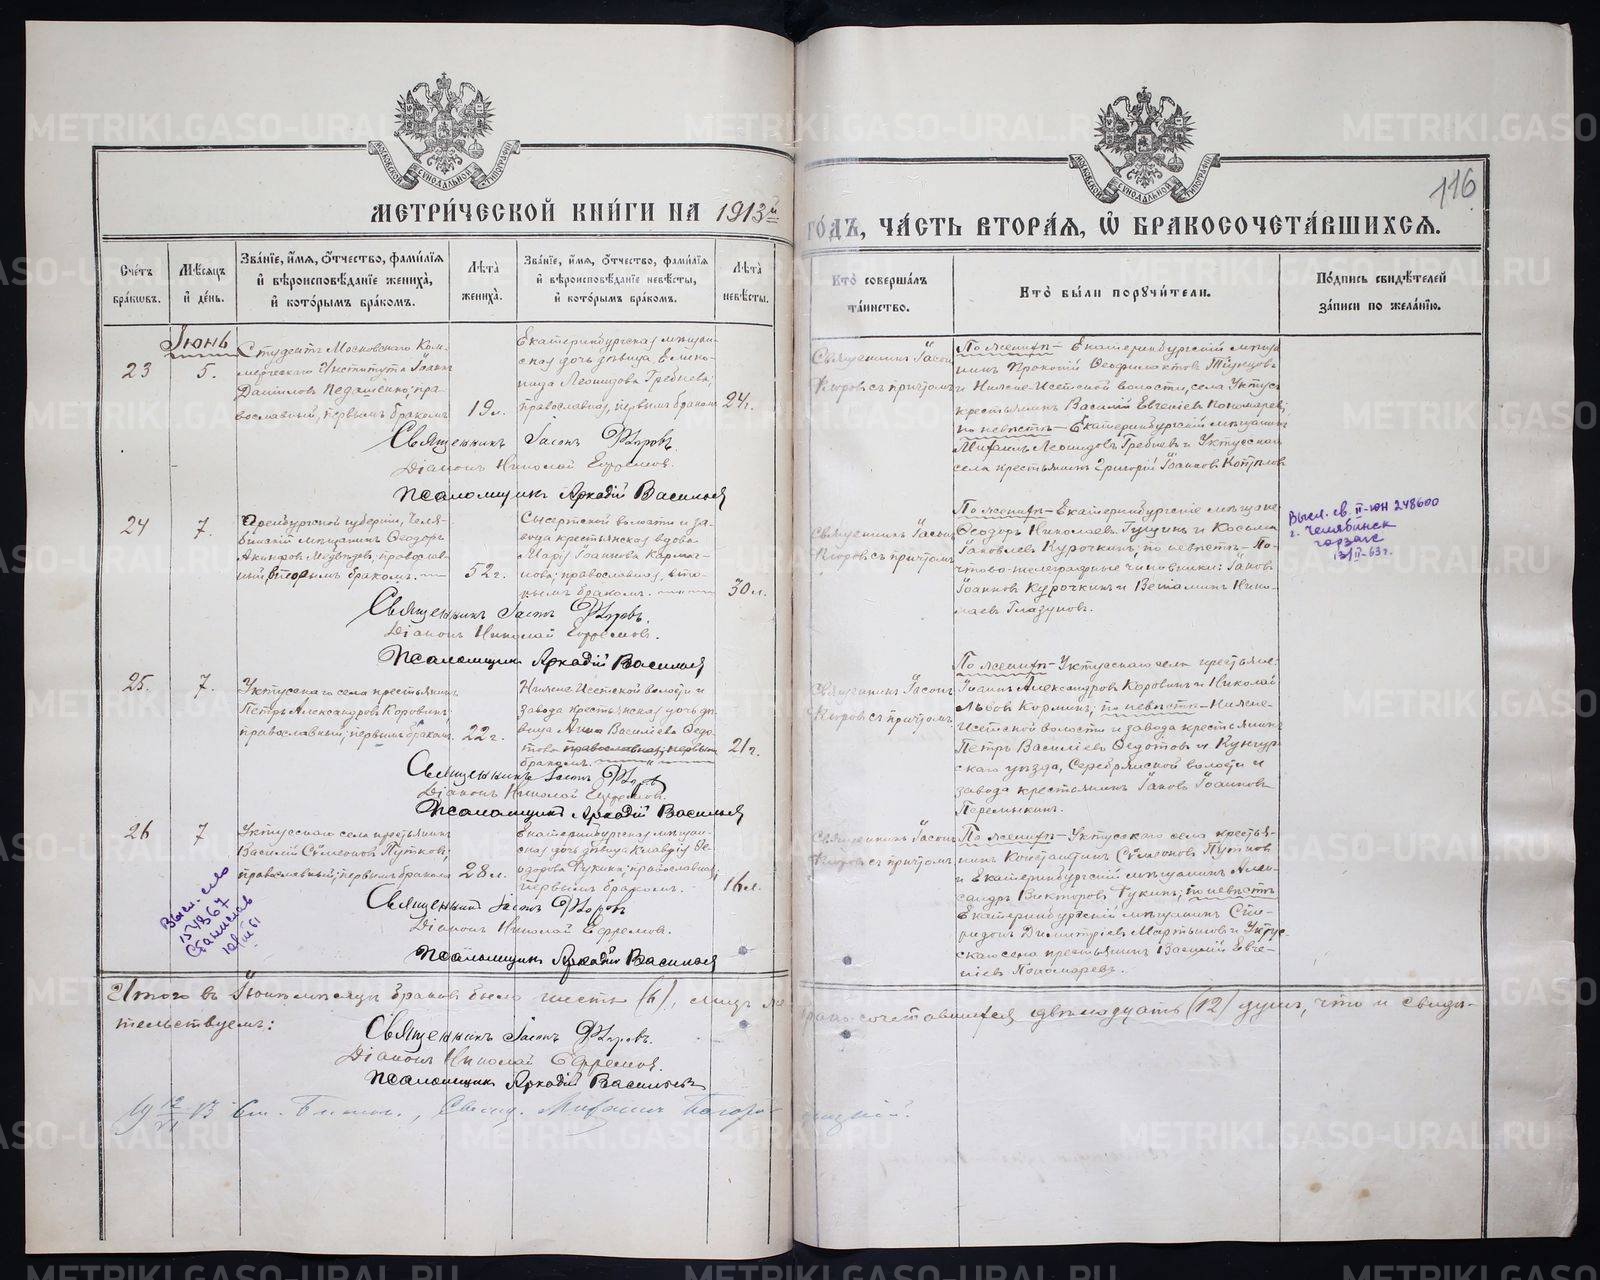 МОСКОВСКОЙ СѴНОДАЛЬНОЙ ТИПОГРАФІИ
МОСКОВСКОЙ СѴНОДАЛЬНОЙ ТИПОГРАФІИ
116
МЕТРИ́ЧЕСКОЙ КНИ́ГИ НА 1913й
ГО́ДЪ, ЧА́СТЬ ВТОРА́Я, Ѡ҆ БРАКОСОЧЕТА́ВШИХСЯ.
Сче́тъ бра́ковъ.
Мѣ́сяцъ и҆ де́нь.
Зва́нїе, и҆́мя, ѻ҆́тчество, фами́лїя и҆ вѣроисповѣ́данїе жениха̀, и҆ кото́рымъ бра́комъ.
Лѣ́та жениха̀.
Зва́нїе, и҆́мя, ѻ҆́тчество, фами́лїя и҆ вѣроисповѣ́данїе невѣ́сты, и҆ кото́рымъ бра́комъ.
Лѣ́та невѣ́сты.
Кто̀ соверша́лъ та́инство.
Кто̀ бы́ли порꙋчи́тели.
По́дпись свидѣ́телей за́писи по жела́нїю.
Іюнь
23
5.
Студентъ Московскаго Ком-
мерческаго Института Іоаннъ
Данииловъ Педашенко, пра-
вославный, первымъ бракомъ
19л.
Екатеринбургская мѣщан-
ская дочь дѣвица Елико-
нида Леонидова Гребнева,
православная, первымъ бракомъ
24г.
Священникъ Іасонъ
Кыровъ съ причтомъ
По женихѣ – Екатеринбургскій мѣща-
нинъ Прокопій Ѳеофилактовъ
и Нижне-Исетской волости, села Уктусъ
крестьянинъ Василій Евгеніевъ Пономаревъ;
по невѣстѣ – Екатеринбургскій мѣщанинъ
Михаилъ Леонидовъ Гребневъ и Уктусскаго
села крестьянинъ Григорій Іоанновъ Котѣловъ
Священникъ Іасонъ Кыровъ.
Діаконъ Николай Ефремовъ.
Псаломщикъ Аркадій Васильевъ
24
7.
Оренбургской губерніи, Челя-
бинскій мѣщанинъ Ѳеодоръ
Акиндовъ Медвѣдевъ, православ-
ный, вторымъ бракомъ.
52г.
Сысертской волости и за-
вода крестьянская вдова
Марія Іоаннова
православная, вто-
рымъ бракомъ.
30л.
Священникъ Іасонъ
Кыровъ съ причтомъ
По женихѣ – Екатеринбургскіе мѣщане
Ѳеодоръ Николаевъ Гущинъ и Косьма
Іаковлевъ Курочкинъ; по невѣстѣ – По-
чтово-телеграфные чиновники: Іаковъ
Іоанновъ Курочкинъ и Веніаминъ Нико-
лаевъ Глазуновъ.
Высл. св. II-ЮН 248600
г. Челябинск
горзагс
13/II-63г.
Священникъ Іасонъ Кыровъ.
Діаконъ Николай Ефремовъ.
Псаломщикъ Аркадій Васильевъ
25.
7.
Уктусскаго села крестьянинъ
Петръ Александровъ Коровинъ,
православный; первымъ бракомъ
22г.
Нижне-Исетской волости и
завода крестьянская дочь дѣ-
вица Анна Василіева Ѳедо-
това православная, первымъ
бракомъ.
21г.
Священникъ Іасонъ
Кыровъ съ причтомъ
По женихѣ – Уктусскаго села крестьяне:
Іоаннъ Александровъ Коровинъ и Николай
Львовъ Корминъ; по невѣстѣ – Нижне-
Исетской волости и завода крестьянинъ
Петръ Василіевъ Ѳедотовъ и Кунгур-
скаго уѣзда, Серебрянской волости и
завода крестьянинъ Іаковъ Іоанновъ
Перемыкинъ.
Священникъ Іасонъ Кыровъ
Діаконъ Николай Ефремовъ.
Псаломщикъ Аркадій Васильевъ
26
7
Уктусскаго села крестьянинъ
Василій Сѵмеоновъ Путковъ,
православный; первымъ бракомъ
28л.
Екатеринбургская мѣщан-
ская дочь дѣвица Клавдія Ѳе-
одорова Фукина; православная;
первымъ бракомъ.
16л.
Священникъ Іасонъ
Кыровъ съ причтомъ
По женихѣ – Уктусскаго села крестья-
нинъ Константинъ Сѵмеоновъ Путковъ
и Екатеринбургскій мѣщанинъ Алек-
сандръ Викторовъ Фукинъ; по невѣстѣ
Екатеринбургскій мѣщанинъ Спи-
ридонъ Димитріевъ Мартьяновъ и Уктус-
скаго села крестьянинъ Василій Евге-
ніевъ Пономаревъ.
Священникъ Іасонъ Кыровъ
Діаконъ Николай Ефремовъ.
Псаломщикъ Аркадій Васильевъ
Итого въ Іюнѣ мѣсяцѣ браковъ было шесть (6), лицъ же
бракосочетавшихся двѣнадцать (12) душъ, что и свидѣ-
тельствуемъ:
Священникъ Іасонъ Кыровъ.
Діаконъ Николай Ефремовъ.
Псаломщикъ Аркадій Васильевъ
METRIKI.GASO-URAL.RU